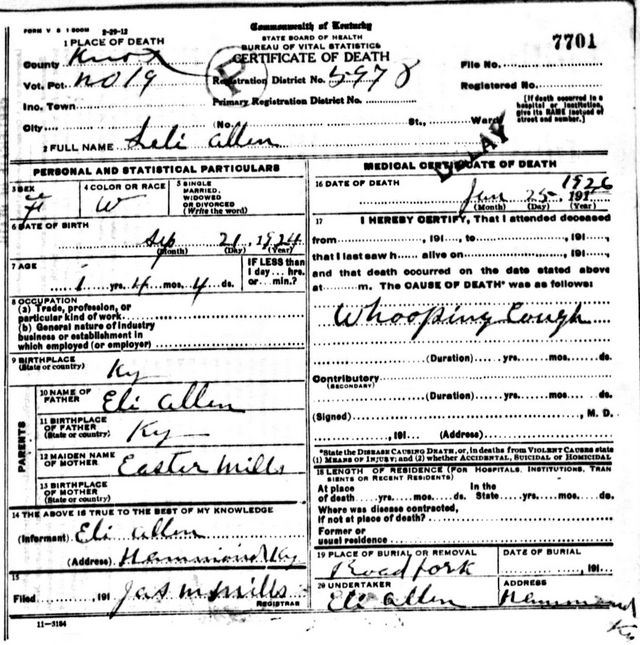 FORM V S 1 500M 2-29-12
Commonwealth of Kentucky
STATE BOARD OF HEALTH
BUREAU OF VITAL STATISTICS
CERTIFICATE OF DEATH
7701
1 PLACE OF DEATH
County Knox
Vot. Pct. No 19
Inc. Town
City (No. St., Ward)
Registration District No. 5978
Primary Registration District No.
File No.
Registered No.
[If death occurred in a
hospital or institution,
give its NAME instead of
street and number.]
DELAY
2 FULL NAME Leli Allen
PERSONAL AND STATISTICAL PARTICULARS
3 SEX
F
4 COLOR OR RACE
W
5 SINGLE
MARRIED,
WIDOWED
OR DIVORCED
(Write the word)
6 DATE OF BIRTH
Sep 21, 1924
(Month) (Day) (Year)
7 AGE
1 yrs. 4 mos. 4 ds.
IF LESS than
1 day... hrs.
or... min.?
8 OCCUPATION
(a) Trade, profession, or
particular kind of work
(b) General nature of Industry
business or establishment in
which employed (or employer)
9 BIRTHPLACE
(State or country) Ky
PARENTS
10 NAME OF
FATHER Eli Allen
11 BIRTHPLACE
OF FATHER
(State or country) Ky
12 MAIDEN NAME
OF MOTHER Easter Mills
13 BIRTHPLACE
OF MOTHER
(State or country)
14 THE ABOVE IS TRUE TO THE BEST OF MY KNOWLEDGE
(Informant) Eli Allen
(Address) Hammond Ky
15
Filed , 191 Jas M Mills
REGISTRAR
11-3184
MEDICAL CERTIFICATE OF DEATH
16 DATE OF DEATH
1926
Jan 25, 191
(Month) (Day) (Year)
17 I HEREBY CERTIFY, That I attended deceased
from , 191 , to , 191 ,
that I last saw h alive on , 191 ,
and that death occurred on the date stated above
at m. The CAUSE OF DEATH* was as follows:
Whooping Cough
(Duration) yrs. mos. ds.
Contributory
(SECONDARY)
(Duration) yrs. mos. ds.
(Signed) , M. D.
, 191 (Address)
*State the DISEASE CAUSING DEATH, or, in deaths from VIOLENT CAUSES state
(1) MEANS OF INJURY; and (2) whether ACCIDENTAL, SUICIDAL OR HOMICIDAL
18 LENGTH OF RESIDENCE (FOR HOSPITALS, INSTITUTIONS, TRAN
SIENTS OR RECENT RESIDENTS)
At place In the
of death yrs. mos. ds. State yrs. mos. ds.
Where was disease contracted,
if not at place of death?
Former or
usual residence
19 PLACE OF BURIAL OR REMOVAL
Road fork
DATE OF BURIAL
, 191
20 UNDERTAKER
Eli Allen
ADDRESS
Hammond
Ky.